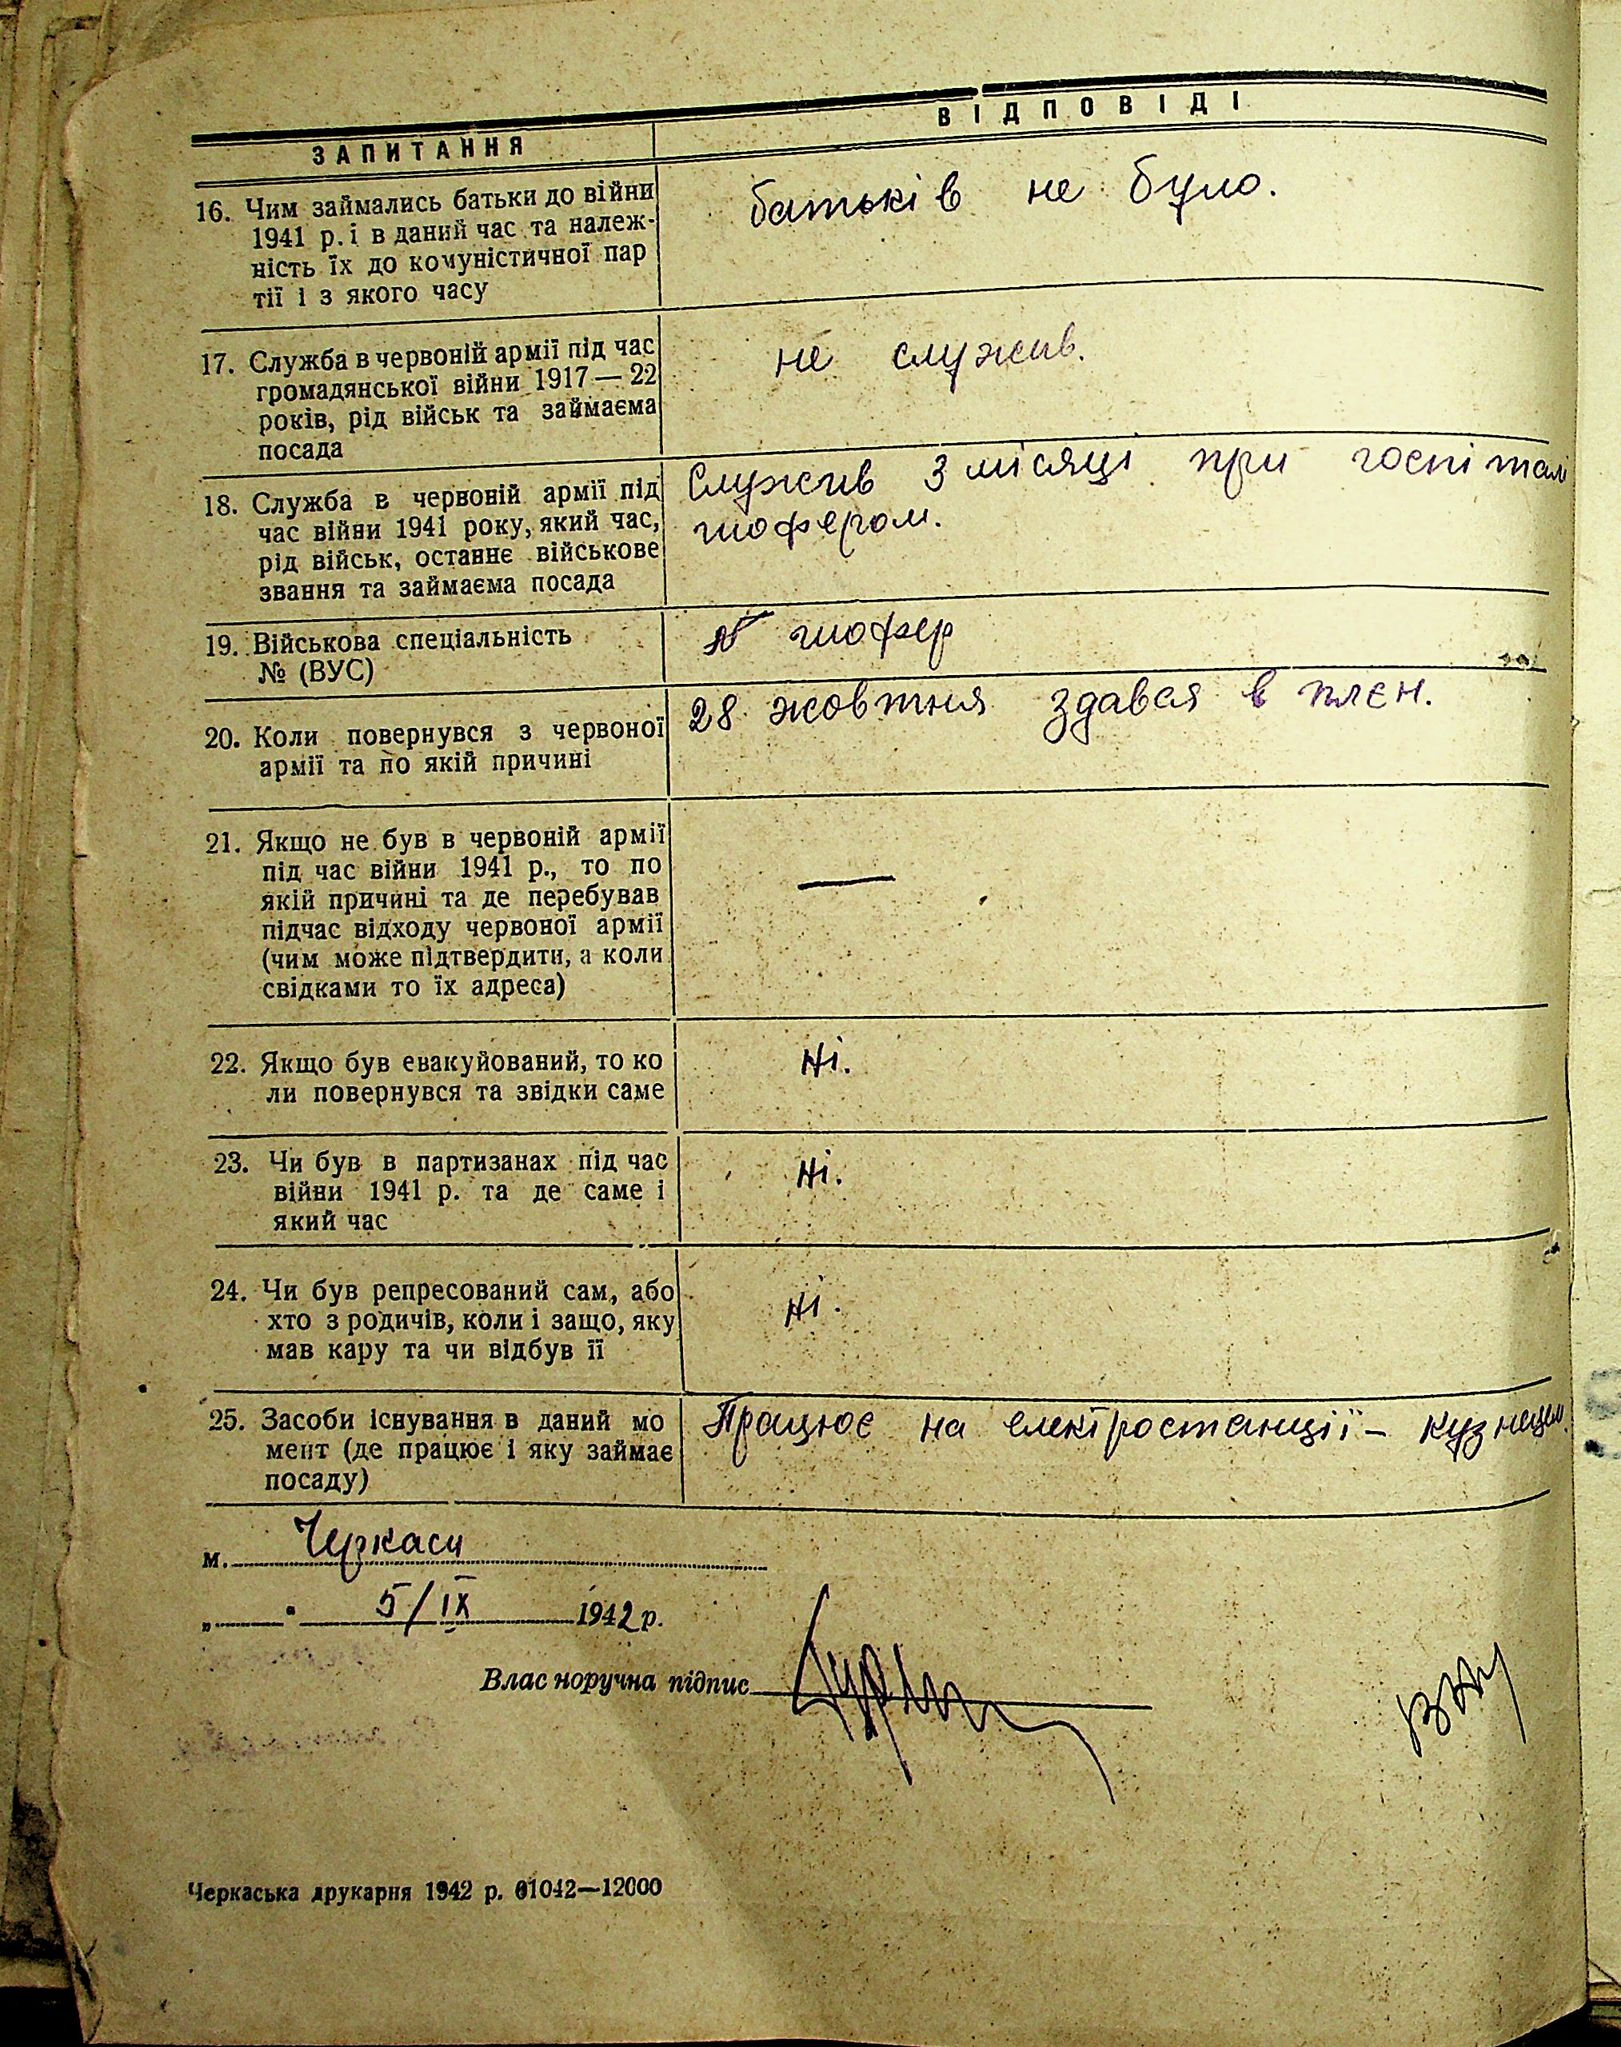 ЗАПИТАННЯ
ВІДПОВІДІ
16. Чим займались батьки до війни
1941 р. і в даний час та належ-
ність їх до комуністичної пар
тії і з якого часу
батьків не було.
17. Служба в червоній армії під час
громадянської війни 1917 — 22
років, рід військ та займаєма
посада
не служив.
18. Служба в червоній армії під
час війни 1941 року, який час,
рід військ, останнє військове
звання та займаєма посада
Служив 3 місяці при госпіталі
шофером.
19. Військова спеціальність
№ (ВУС)
шофер
20. Коли повернувся з червоної
армії та по якій причині
28 жовтня здався в плєн.
21. Якщо не був в червоній армії
під час війни 1941 р., то по
якій причині та де перебував
підчас відходу червоної армії
(чим може підтвердити, а коли
свідками то їх адреса)
—
22. Якщо був евакуйований, то ко
ли повернувся та звідки саме
Ні.
23. Чи був в партизанах під час
війни 1941 р. та де саме і
який час
Ні.
24. Чи був репресований сам, або
хто з родичів, коли і защо, яку
мав кару та чи відбув її
Ні.
25. Засоби існування в даний мо
мент (де працює і яку займає
посаду)
Працює на електростанції – кузнецом.
м. Черкаси
„ " 5/IX 1942 р.
Влас норучна підпис
Черкаська друкарня 1942 р. 01042—12000